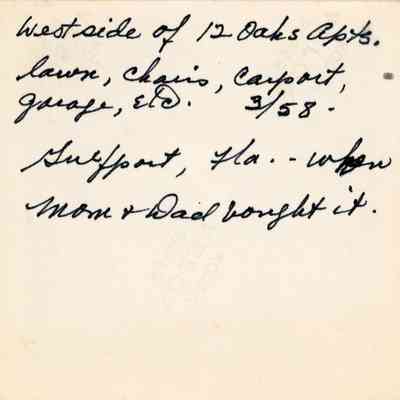 West side of 12 Oaks Apts.
lawn, chairs, carport,
garage, etc. 3/58.
Gulfport, Fla. - when
Mom & Dad bought it.